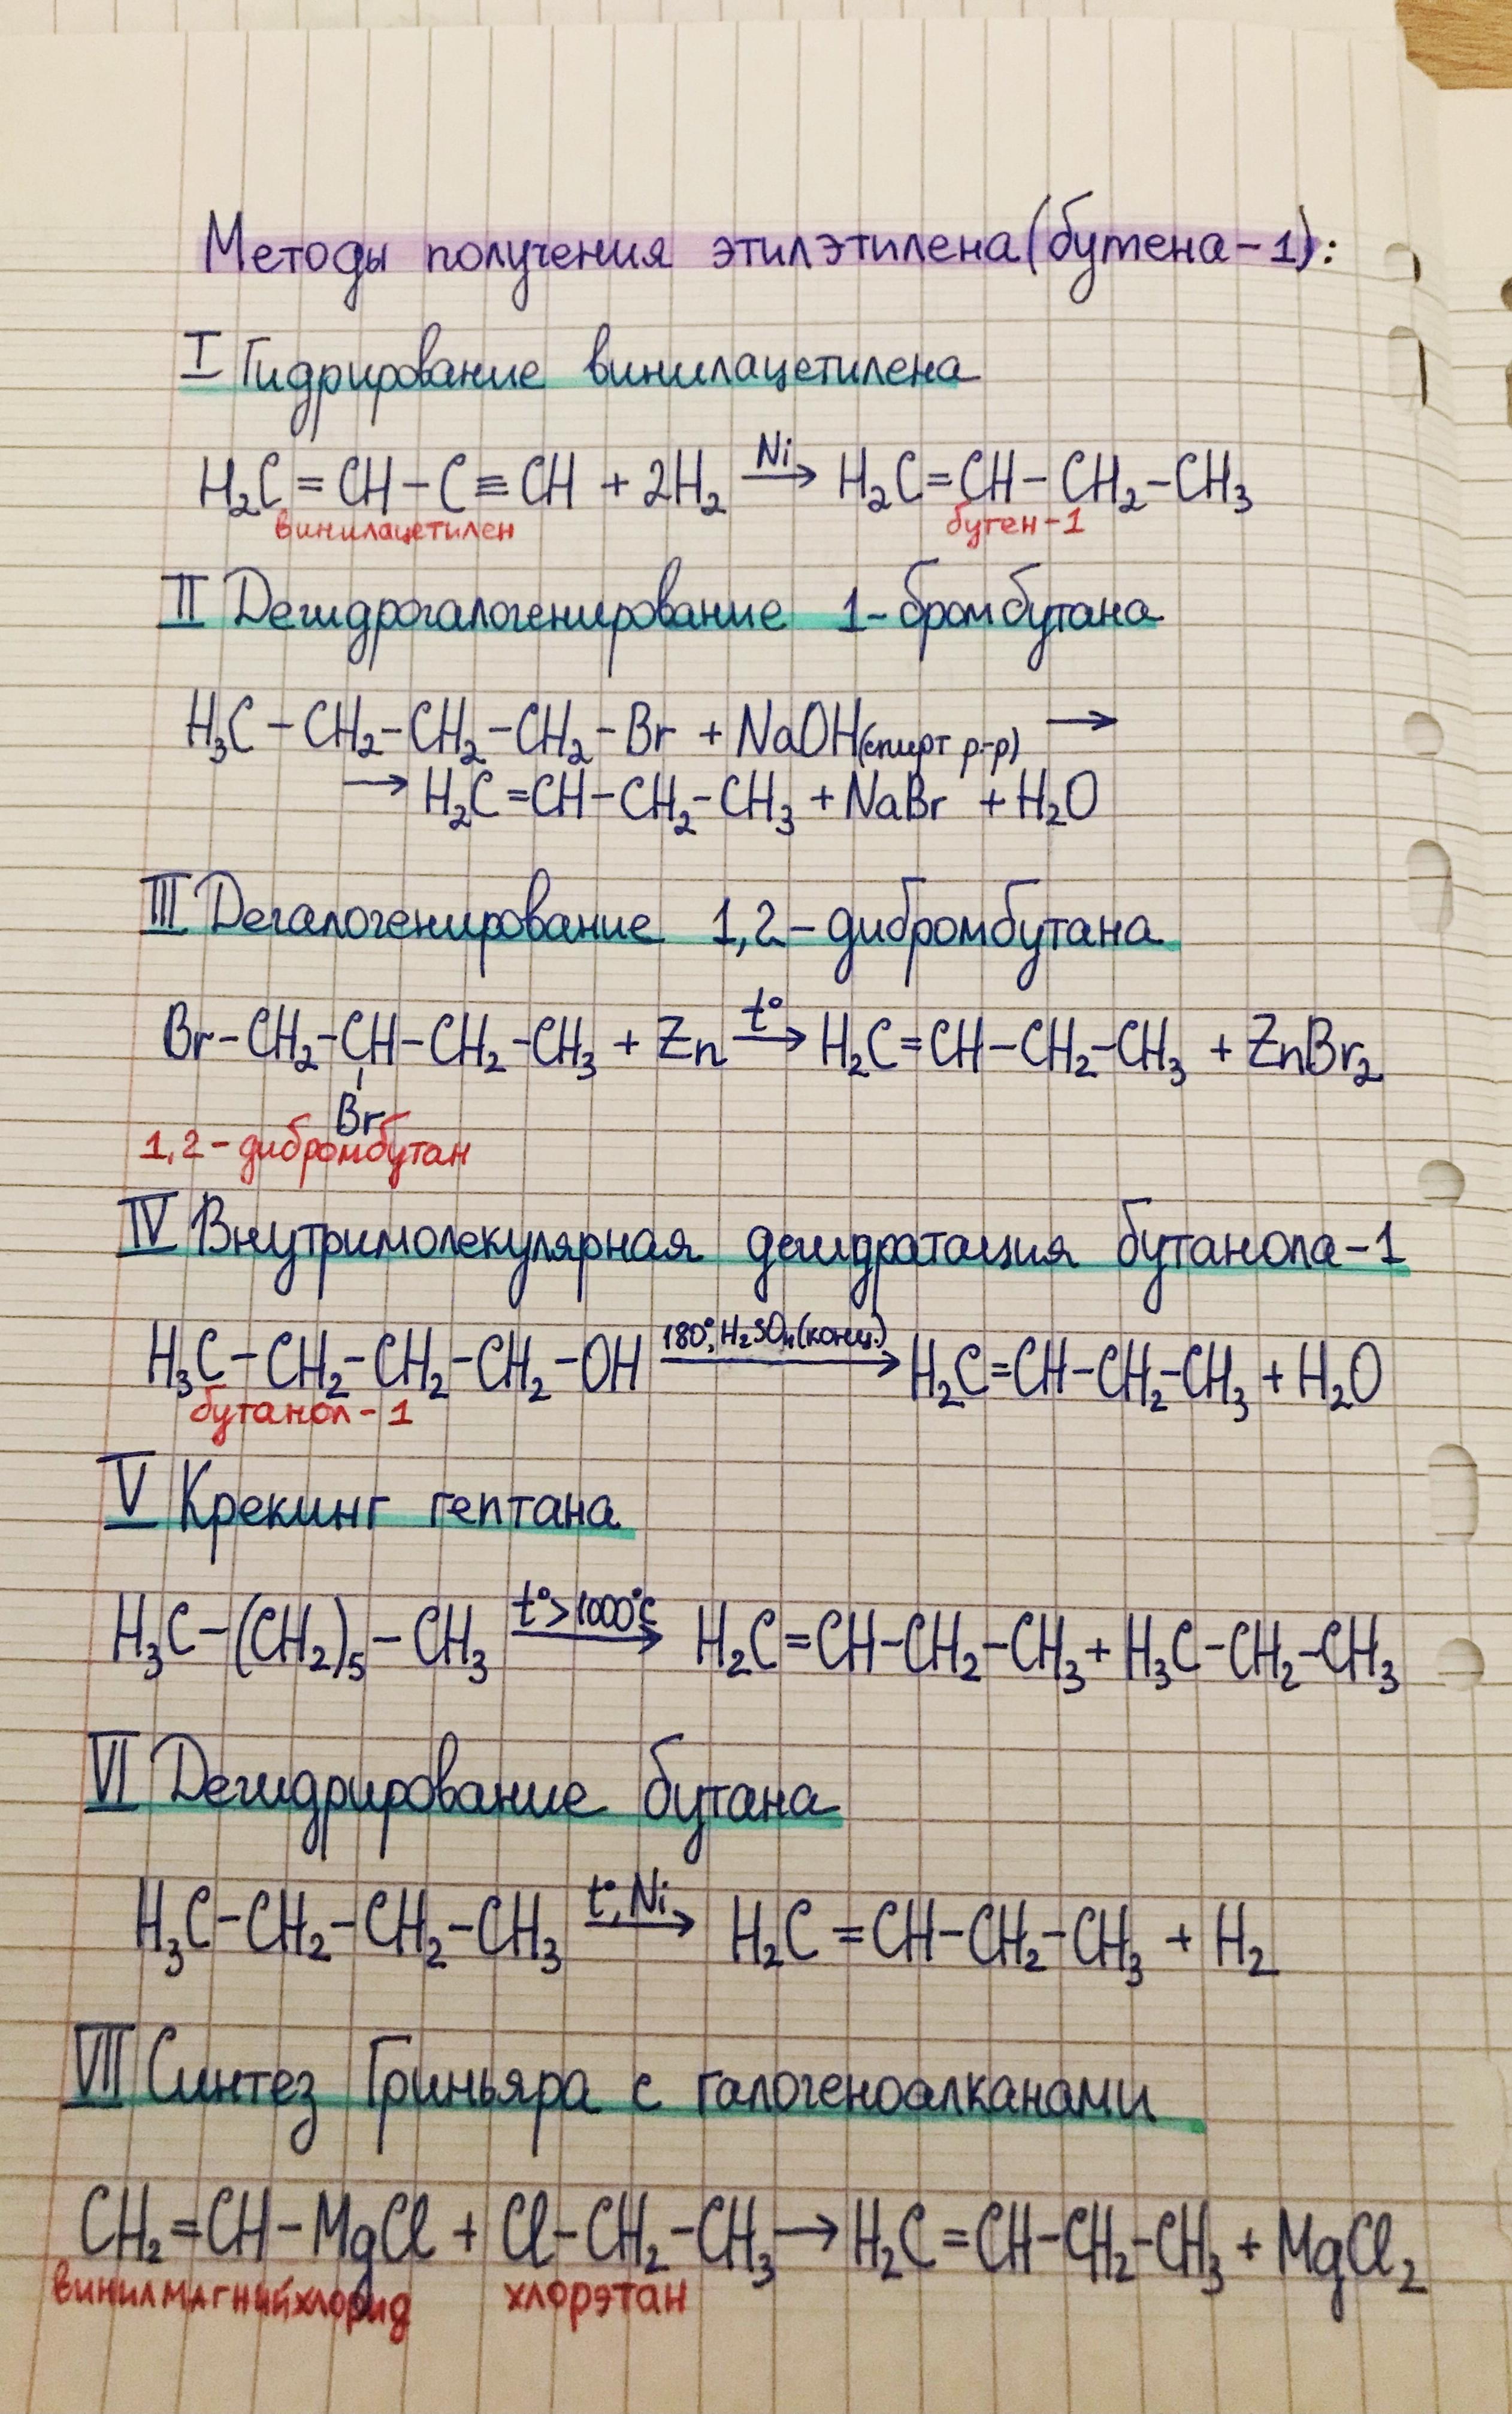 Методы получения этилэтилена (бутена-1):
I Гидрирование винилацетилена
H₂C=CH-C≡CH + 2H₂ —Ni→ H₂C=CH-CH₂-CH₃
винилацетилен бутен-1
II Дегидрогалогенирование 1-бромбутана
H₃C-CH₂-CH₂-CH₂-Br + NaOH(спирт р-р) →
→ H₂C=CH-CH₂-CH₃ + NaBr + H₂O
III Дегалогенирование 1,2-дибромбутана
Br-CH₂-CH-CH₂-CH₃ + Zn —t°→ H₂C=CH-CH₂-CH₃ + ZnBr₂
Br
1,2-дибромбутан
IV Внутримолекулярная дегидратация бутанола-1
H₃C-CH₂-CH₂-CH₂-OH —180°, H₂SO₄(конц.)→ H₂C=CH-CH₂-CH₃ + H₂O
бутанол-1
V Крекинг гептана
H₃C-(CH₂)₅-CH₃ —t°>1000°C→ H₂C=CH-CH₂-CH₃ + H₃C-CH₂-CH₃
VI Дегидрирование бутана
H₃C-CH₂-CH₂-CH₃ —t°, Ni→ H₂C=CH-CH₂-CH₃ + H₂
VII Синтез Гриньяра с галогеноалканами
CH₂=CH-MgCl + Cl-CH₂-CH₃ → H₂C=CH-CH₂-CH₃ + MgCl₂
винилмагнийхлорид хлорэтан